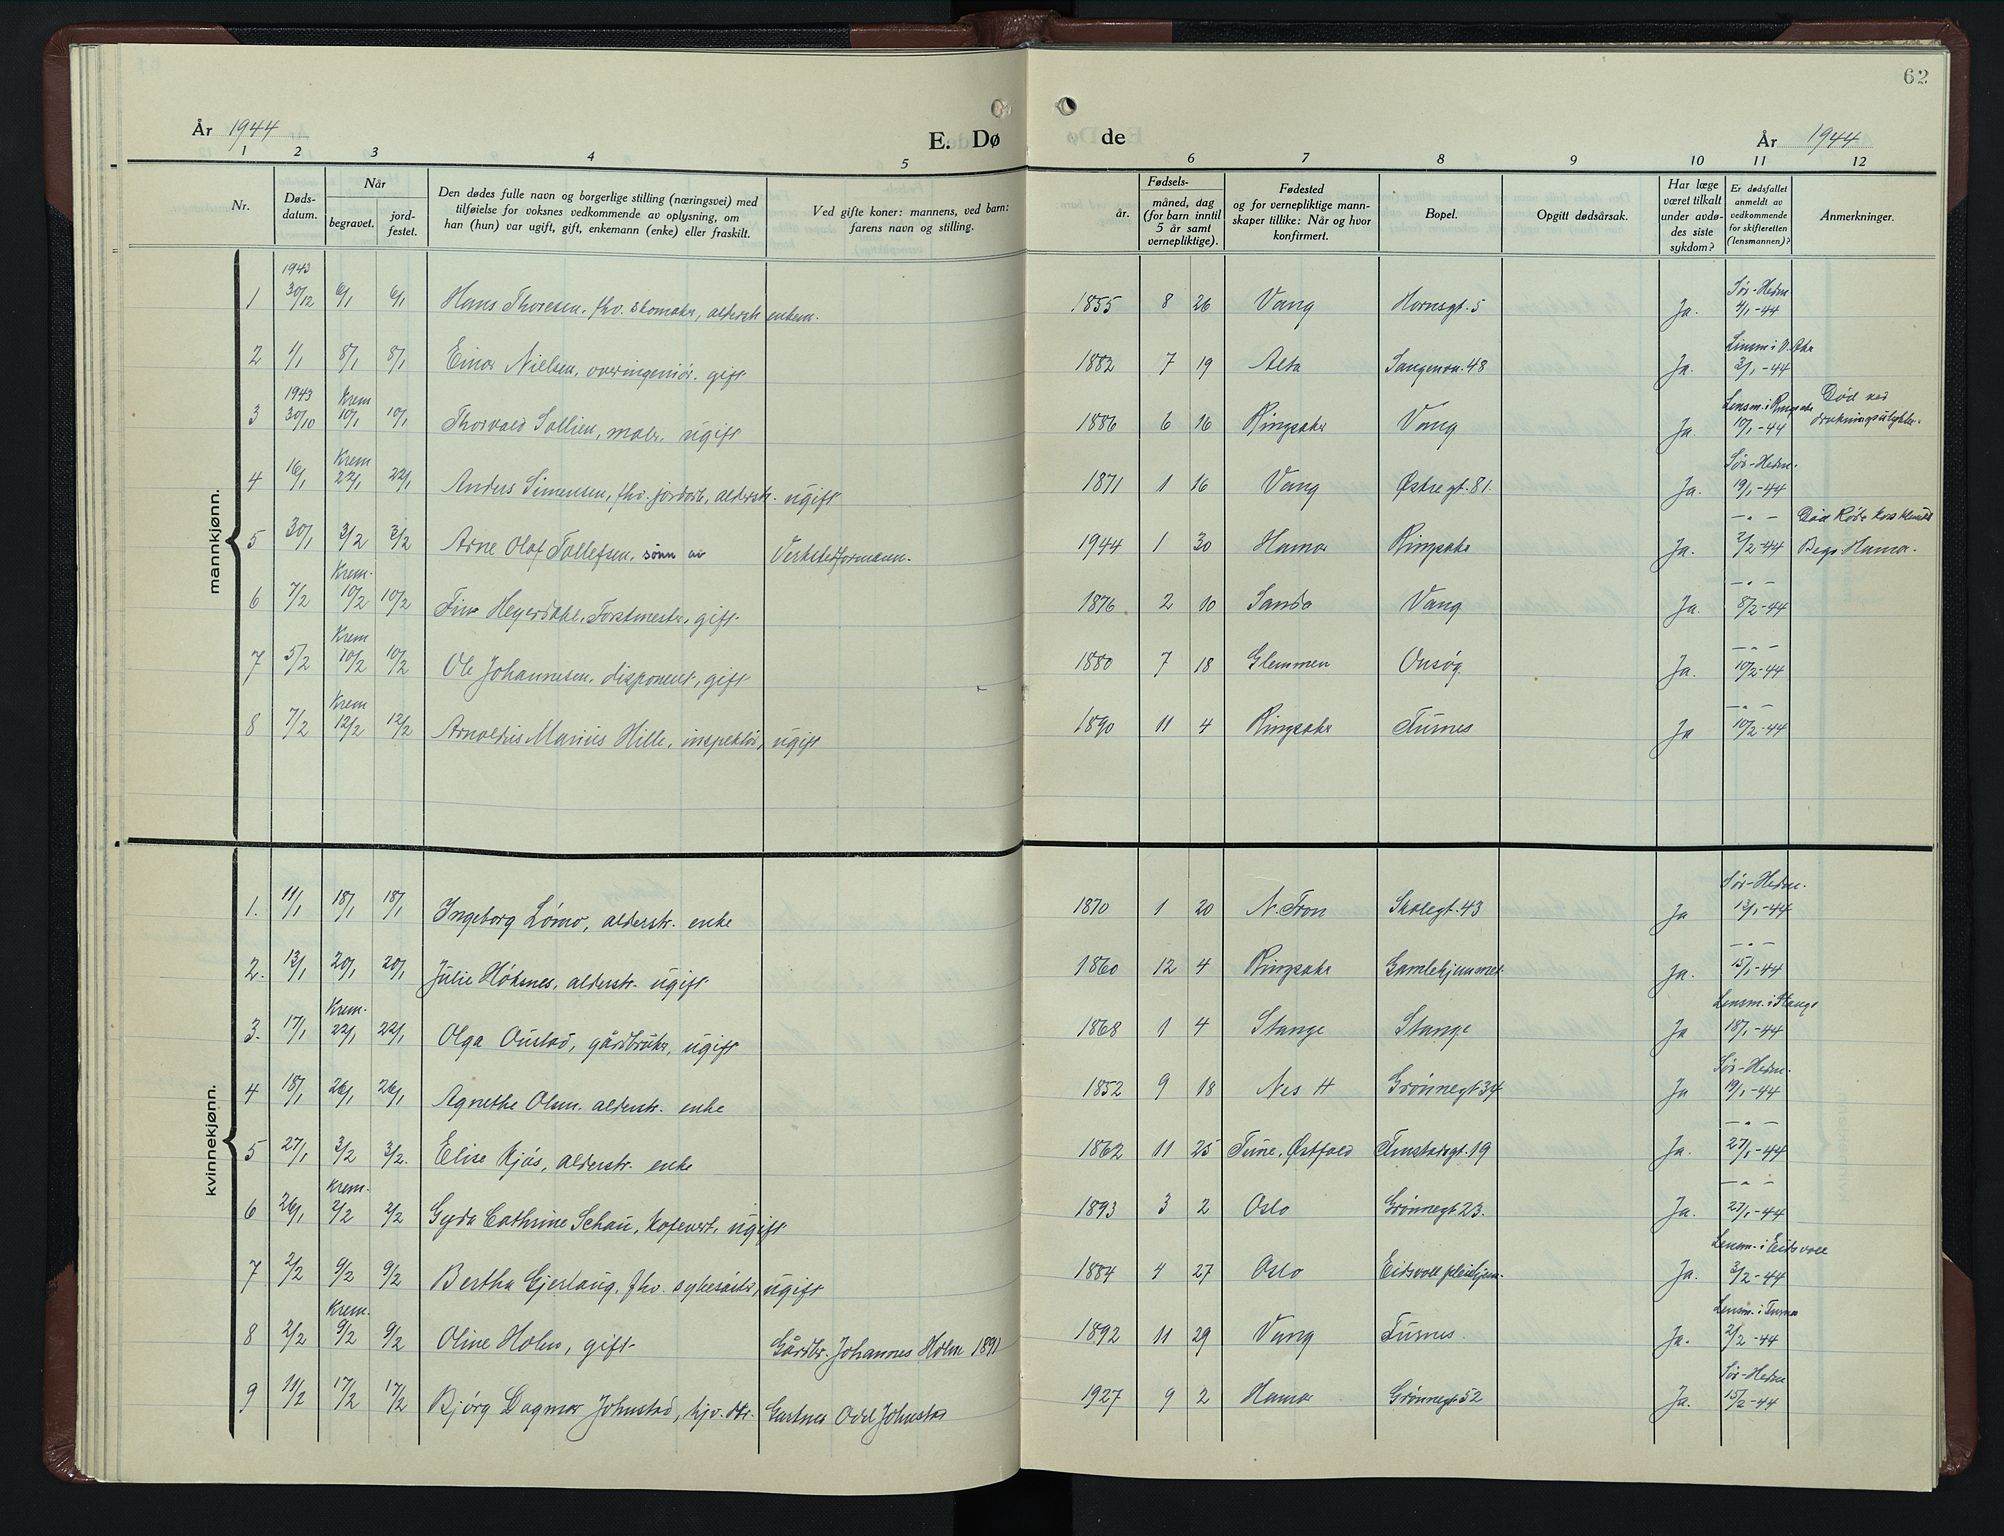 62
År 1944 E. Dø de År 1944
1 2 3 4 5 6 7 8 9 10 11 12
Nr. Døds-datum. Når begravet. jord-festet. Den dødes fulle navn og borgerlige stilling (næringsvei) med tilføielse for voksnes vedkommende av oplysning, om han (hun) var ugift, gift, enkemann (enke) eller fraskilt. Ved gifte koner: mannens, ved barn: farens navn og stilling. år. Fødsels-måned, dag (for barn inntil 5 år samt vernepliktige). Fødested og for vernepliktige mann-skaper tillike: Når og hvor konfirmert. Bopel. Opgitt dødsårsak. Har læge været tilkalt under avdø-des siste sykdom? Er dødsfallet anmeldt av vedkommende for skifteretten (lensmannen)? Anmerkninger.
mannkjønn.
1 1943 30/12 6/1 6/1 Hans Thoresen, fhv. skomaker, alderstr. enkem. 1855 8 26 Vang Hornsgt. 5 Ja. Sør-Hedm 4/1-44
2 1/1 8/1 8/1 Einar Nielsen, overingeniør. gift 1882 7 19 Alta Sangenvn. 48 Ja. Lensm i V. Aker 3/1-44
3 1943 30/10 Krem 10/1 10/1 Thorvald Sollien, maler, ugift 1886 6 16 Ringsaker Vang Ja. Lensm. i Ringsaker 10/1-44 Død ved drukningsulykke.
4 16/1 Krem 22/1 22/1 Anders Simensen, fhv. jordarb, alderstr. ugift 1871 1 16 Vang Østregt. 81. Ja. Sør-Hedm. 19/1-44
5 30/1 3/2 3/2 Arne Olaf Tollefsen, sønn av Verkstedformann. 1944 1 30 Hamar Ringsaker Ja. -"- 2/2-44 Død Røde Kors Begr. Hamar.
6 7/2 Krem. 10/2 10/2 Finn Heyerdahl, Forstmester, gift. 1876 2 10 Sande Vang Ja. -"- 8/2-44
7 5/2 Krem 10/2 10/2 Ole Johannesen, disponent, gift 1880 7 18 Glemmen Onsøy Ja. -"- 10/2-44
8 7/2 Krem 12/2 12/2 Arnoldus Marius Hille, inspektør, ugift 1890 11 4 Ringsaker Furnes Ja -"- 10/2-44
kvinnekjønn.
1. 11/1 18/1 18/1 Ingeborg Lømo, alderstr. enke 1870 1 20 N. Fron Skolegt. 43 Ja Sør-Hedm. 13/1-44
2. 13/1 20/1 20/1 Julie Høksnes, alderstr. ugift. 1860 12 4 Ringsaker Gamlehjemmet. Ja. -"- 15/1-44
3. 17/1 Krem. 22/1 22/1 Olga Oustad, gårdbruker, ugift 1868 1 4 Stange Stange Ja Lensm. i Stange 18/1-44
4 18/1 26/1 26/1 Agnethe Olsen. alderstr. enke 1852 9 18 Nes H Grønnegt 34. Ja Sør-Hedm. 19/1-44
5 27/1 3/2 3/2. Elise Kjøs, alderstr. enke 1862 11 25 Tune, Østfold Finstadsgt. 19 Ja. -"- 27/1-44
6 26/1 Krem. 2/2 2/2 Gyda Cathrine Schau, kafevert, ugift 1893 3 2 Oslo Grønnegt 23. Ja. -"- 27/1-44
7 2/2 9/2 9/2 Bertha Gjerlaug, fhv. sykesøster, ugift 1884 4 27 Oslo Eidsvoll pleiehjem. Ja. Lensm. i Eidsvoll 3/2-44
8 2/2 Krem. 9/2 9/2 Oline Holm, gift. Gårdbr. Johannes Holm 1891 1892 11 29 Vang Furnes. Ja. Lensm. i Furnes 2/2-44
9 11/2 17/2 17/2 Bjørg Dagmar Johnstad, hjv. dtr. Gartner Odd Johnstad 1927 9 2 Hamar Grønnegt 52 Ja. Sør-Hedm 15/2-44